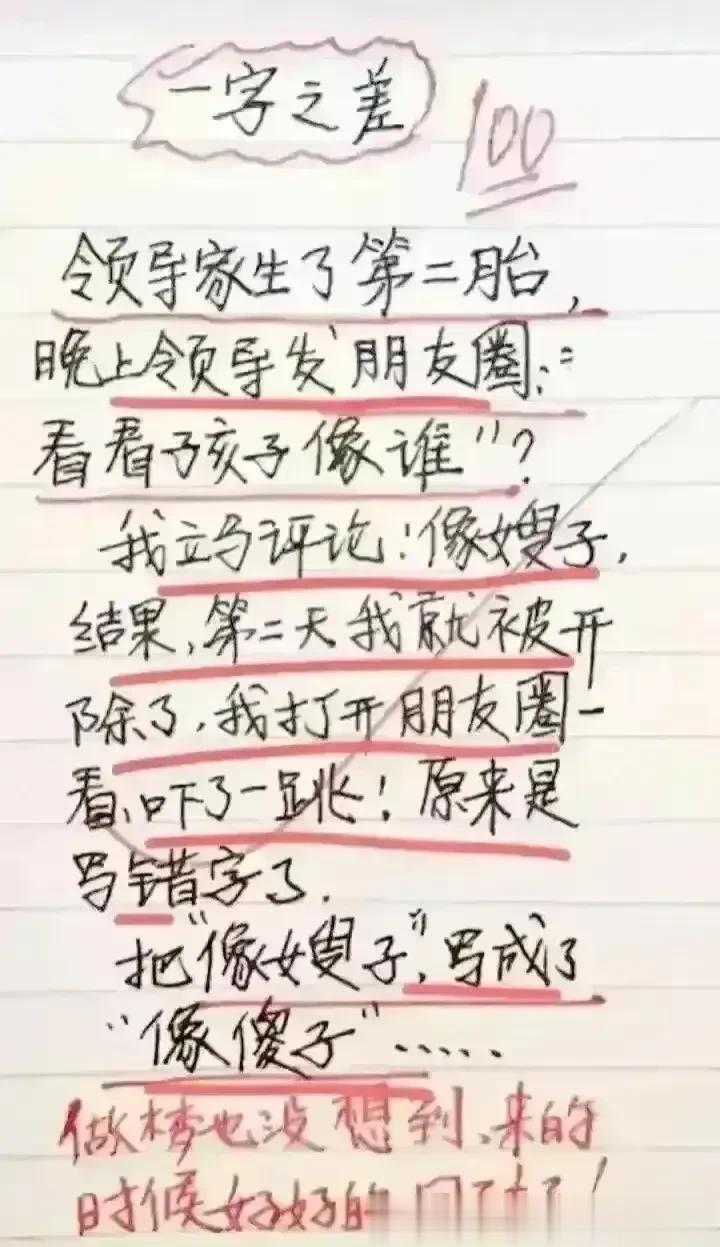 一字之差
100
领导家生了第二胎，
晚上领导发朋友圈：“
看看孩子像谁”？
我立马评论：像嫂子，
结果，第二天我就被开
除了，我打开朋友圈一
看，吓了一跳！原来是
写错字了．
把“像嫂子”，写成了
“像傻子”……
做梦也没想到，来的
时候好好的